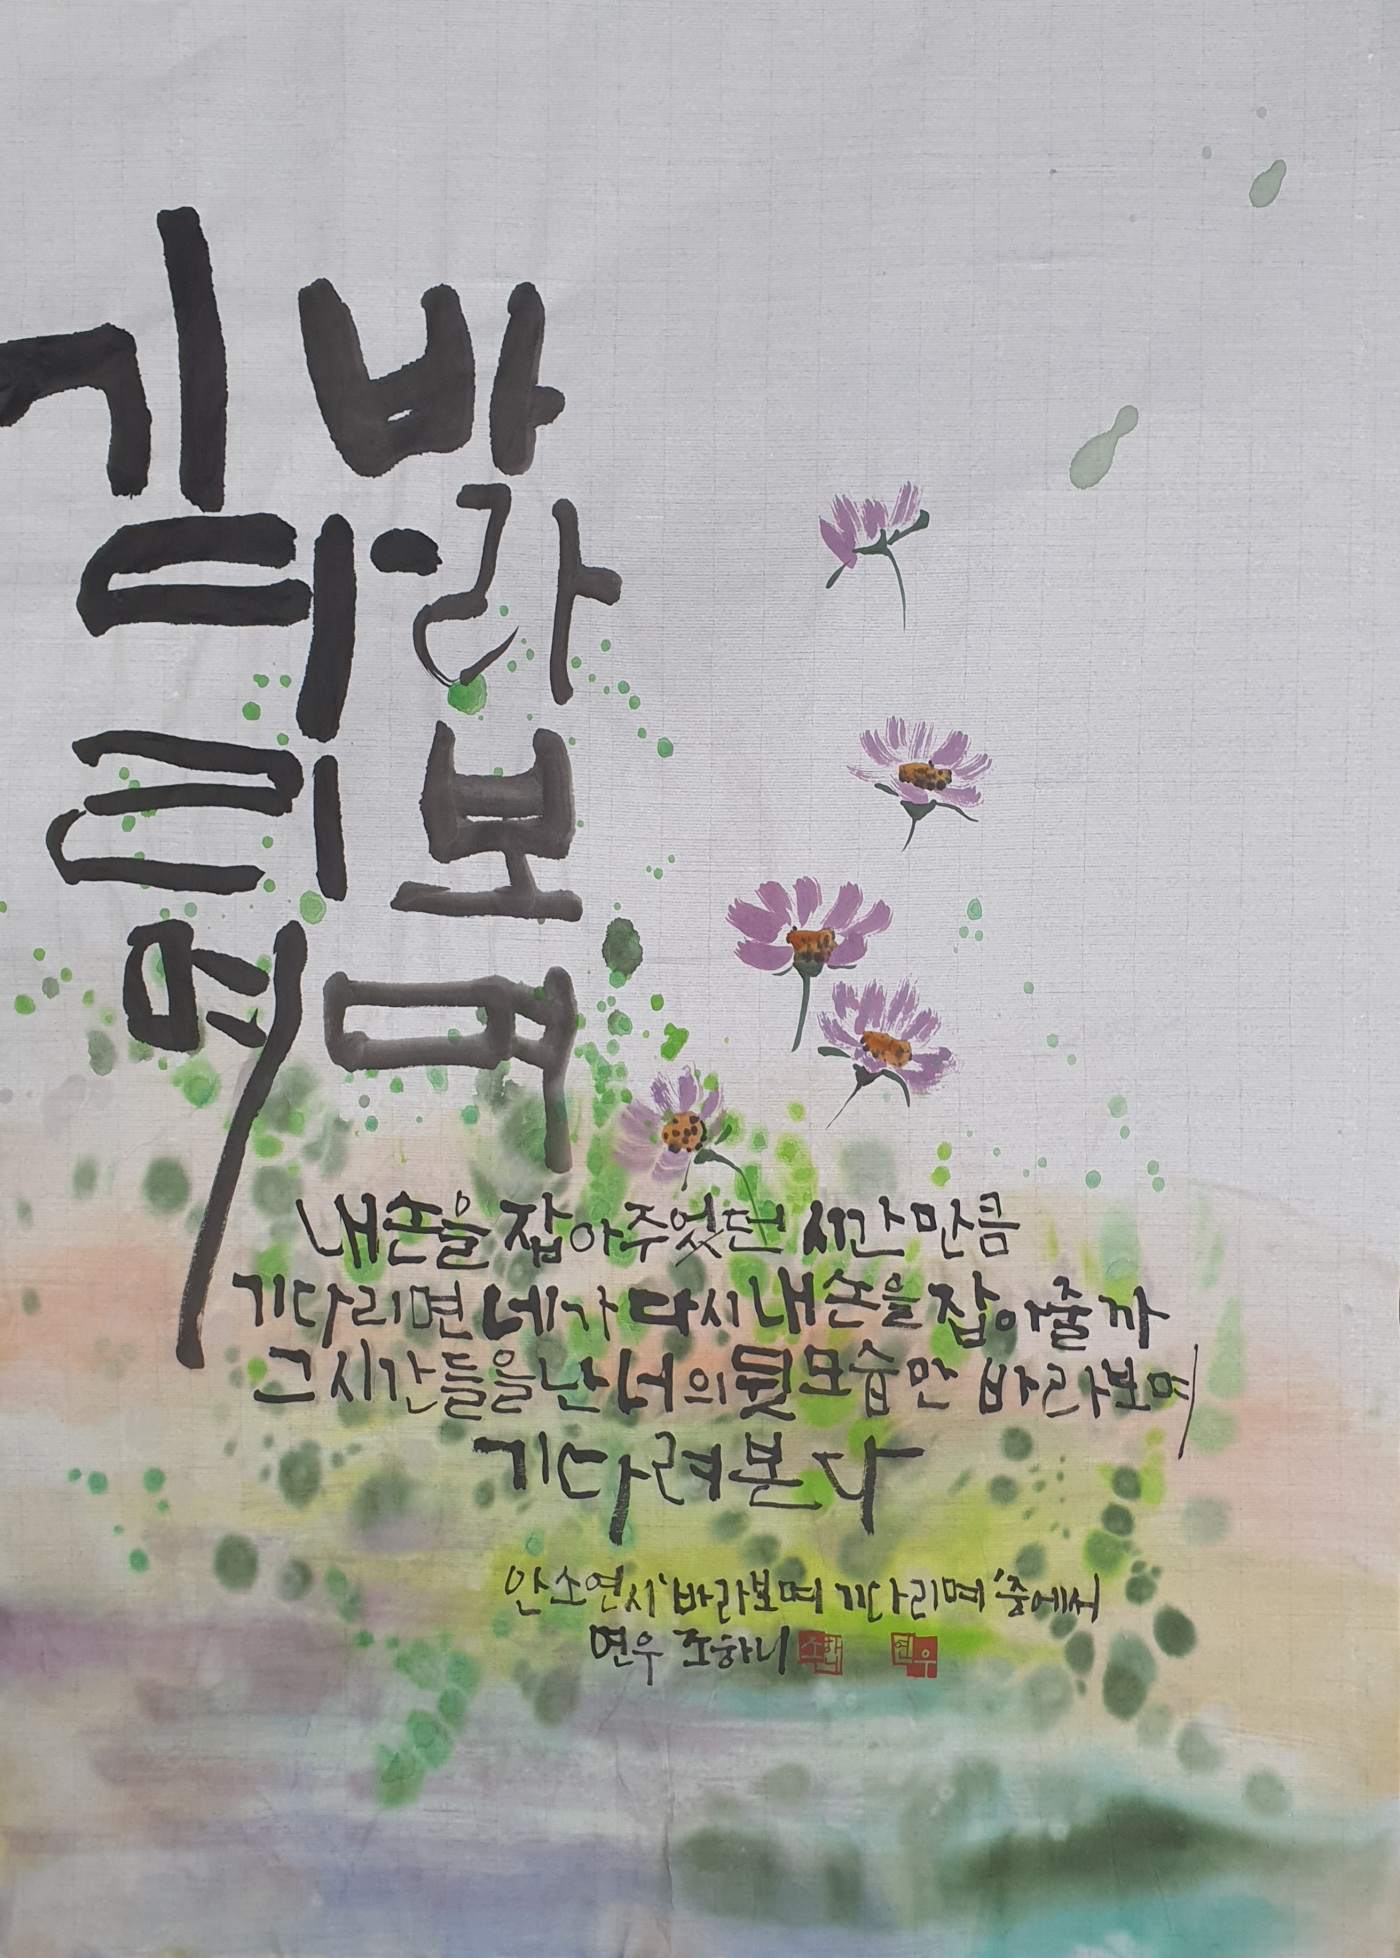 바라보며
기다리며
내 손을 잡아주었던 시간만큼
기다리면 네가 다시 내 손을 잡아줄까
그 시간들을 난 너의 뒷모습만 바라보며
기다려본다
안소연 시 '바라보며 기다리며' 중에서
연우 조하니
연우